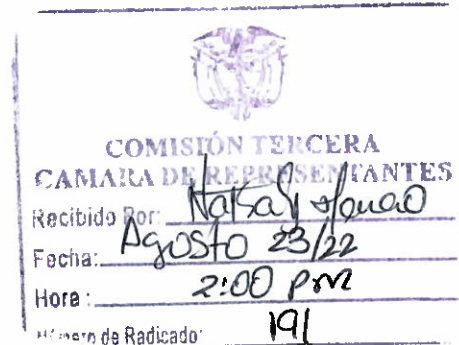 COMISIÓN TERCERA
CAMARA DE REPRESENTANTES
Recibido Por:
Fecha: Agosto 23/22
Hora: 2:00 pm
de Radicado: 191